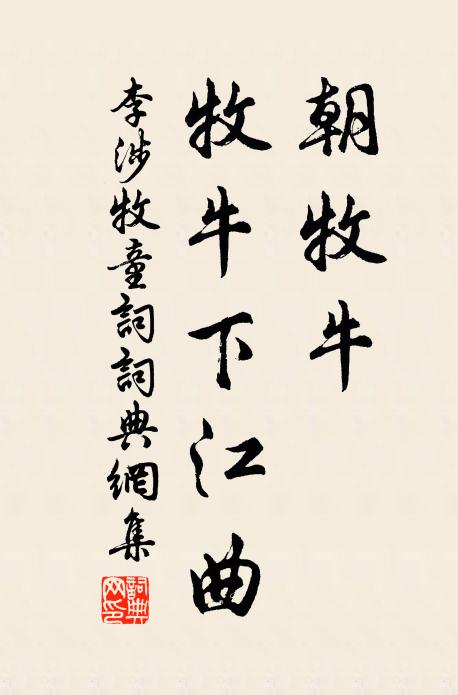 朝牧牛
牧牛下江曲
李涉牧童詞詞典網集
詞典網印